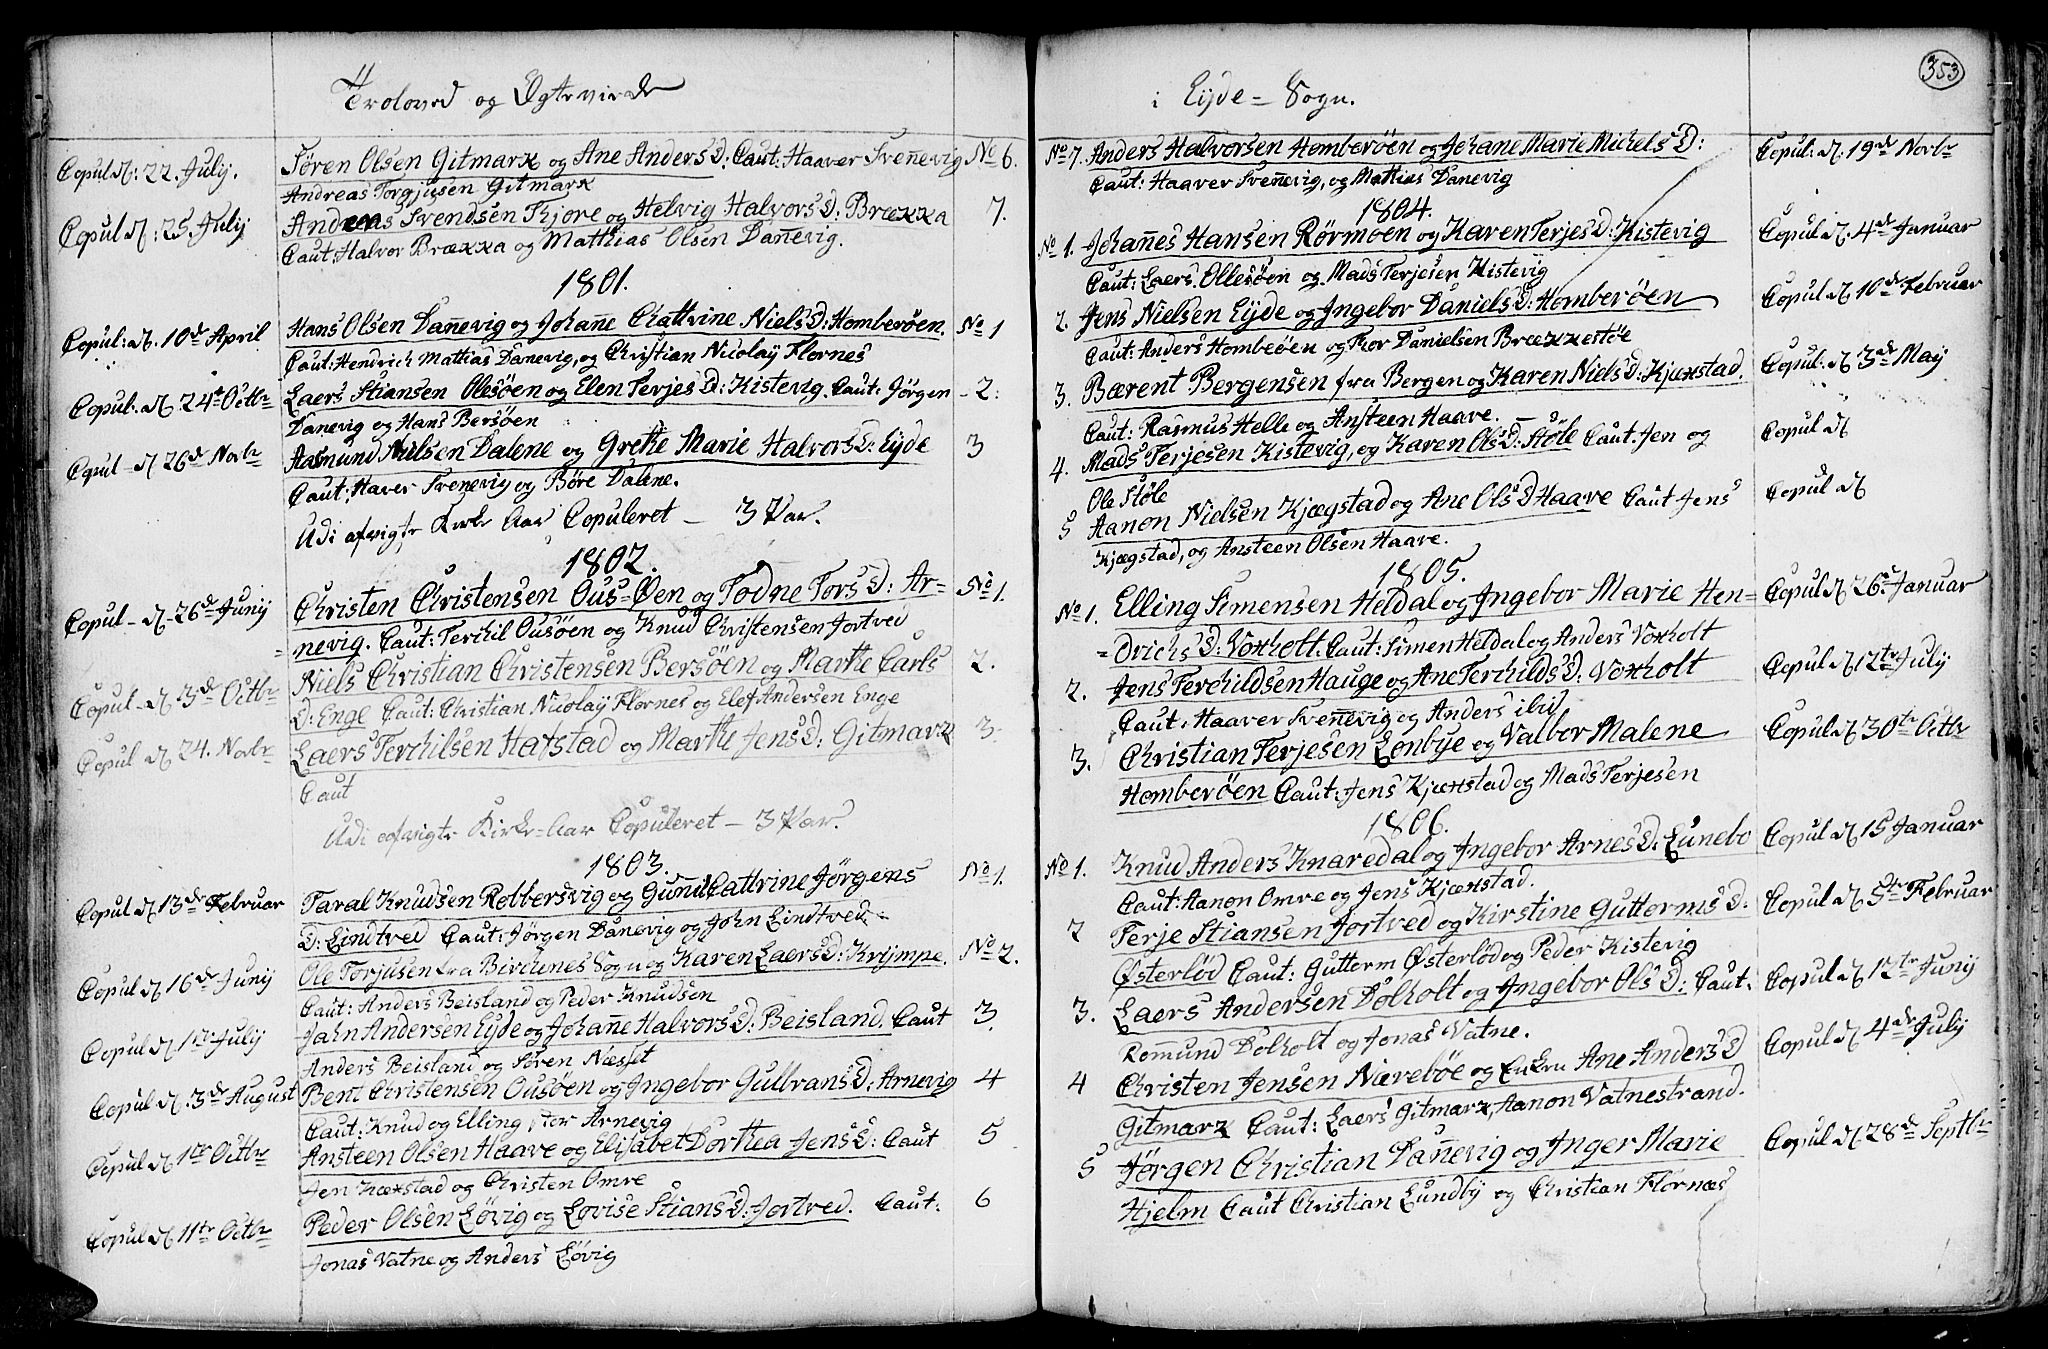 Troloved og Ægtevirde
Copul: d: 22. July.
Søren Olsen Gitmark og Ane Anders D: Caut: Haaver Svennevig No 6.
Andreas Torgjusen Gitmark
Copul d: 25. July
Andreas Svendsen Fjore og Helvig Halvors D: Brækka 7.
Caut: Halvor Brækka og Matthias Olsen Dannevig.
1801.
Copul: d. 10de April
Hans Olsen Dannevig og Johanne Chattrine Niels D: Homberöen. No 1
Caut: Hendrich Mattias Danevig, og Christian Nicolaÿ Flornes
Copul: d. 24de Octbr
Laers Stiansen Olesöen og Elen Terjes D: Kistevig. Caut: Jörgen - 2:
Danevig og Hans Bersöen
Copul - d 26de Novbr
Aasmund Nielsen Dalene og Grethe Marie Halvors D: Eyde 3
Caut: Haver Svenevig og Böre Dalene.
Udi afvigte Kirke Aar Copuleret - 3 Par.
1802.
Copul - d - 26de Junij
Christen Christensen Ous-Øen og Todne Tors D: Ar= No 1.
= nevig. Caut: Terchil Ousöen og Knud Christensen Jortved
Copul - d 3de Octbr
Niels Christian Christensen Bersöen og Marthe Carls 2.
D: Enge Caut: Christian Nicolaÿ Flornes og Elef Andersen Enge
Copul d 24. Novbr
Laers Terchilsen Hafstad og Marthe Jens D: Gitmark 3.
Caut
Udi afvigte Kirke-Aar Copuleret - 3 Par.
1803.
Copul d 13de Februar
Taral Knudsen Robbersvig og Gunnil Cattrine Jörgens No 1.
D: Lindtved Caut: Jörgen Danevig og John Lindtved
Copul d 16de Junij
Ole Torjusen fra Birchenes Sogn og Karen Laers D: Krijmpe. No 2.
Caut: Anders Beisland og Peder Knudsen
Copul d 1te July
Jahn Andersen Eyde og Johanne Halvors D: Beisland. Caut 3.
Anders Beisland og Sören Næsset
Copul d. 3de August
Bent Christensen Ousöen og Ingebor Gulbrans D: Arnevig 4
Caut: Knud og Elling, tor Arnevig
Copul d 1te Octbr
Ansteen Olsen Haave og Elisabet Dorthea Jens D: Caut 5
Jen Kæxstad og Christen Omre
Copul d 11te Octbr
Peder Olsen Lövig og Lovise Stians D: Jortved. Caut: 6
Jonas Vatne og Anders Lövig
353
i Eyde = Sogn.
No 7. Anders Halvorsen Homberöen og Johane Marie Michels D:
Copul: d. 19de Novbr
Caut: Haaver Svennevig, og Mattias Danevig
1804.
No 1. Johannes Hansen Rörmoen og Karen Terjes D: Kistevig
Copul d. 4de Januar
Caut: Laers Ollesöen og Mads Terjesen Kistevig
2. Jens Nielsen Eyde og Ingebor Daniels D: Homberöen
Copul d 10de Februar
Caut: Anders Homberöen og Thor Danielsen Brækkestöe
3. Bærent Bergensen fra Bergen og Karen Niels D: Kjæxstad.
Copul: d 3de Maij
Caut: Rasmus Helle og Ansteen Haave.
4. Mads Terjesen Kistevig, og Karen Ols D: Stöle Caut: Jen og
Copul d
Ole Stöle
5 Aanon Nielsen Kjægstad og Ane Ols D Haave Caut Jens
Copul d
Kjægstad, og Ansteen Olsen Haave.
1805.
No 1. Elling Simensen Heldal og Ingebor Marie Hen=
Copul d 26de Januar
= drichs D: Voxholt. Caut: Simen Heldal og Anders Voxholt
2. Jens Terchildsen Hauge og Ane Terchilds D: Voxholt
Copul d 12te July
Caut: Haaver Svennevig og Anders ibid
3. Christian Terjesen Lonbye og Valbor Malene
Copul d 30te Octbr
Homberöen Caut: Jens Kjæxstad og Mads Terjesen
1806.
No 1. Knud Anders Knaredal og Ingebor Arnes D: Lunebo
Copul d 15 Januar
Caut: Aanon Omre og Jens Kjæxstad.
2 Terje Stiansen Jortved og Kirstine Guttorms D:
Copul d 5te Februar
Østerlöd Caut: Guttorm Østerlöd og Peder Kistevig
3. Laers Andersen Dolholt og Ingebor Ols D: Caut:
Copul d 12te Junij
Rommund Dolholt og Jonas Vatne.
4 Christen Jensen Nærebøe og Enken Ane Anders D
Copul d 4de July
Gitmark Caut: Laers Gitmark, Aanon Vatnestrand.
5 Jörgen Christian Dannevig og Inger Marie
Copul d 28de Septbr
Hjelm Caut Christian Lundbÿ og Christian Flornæs